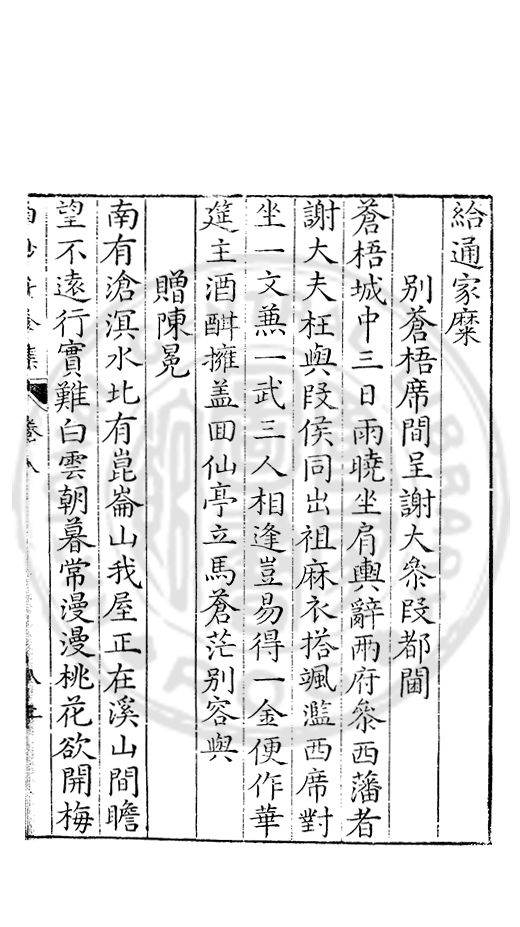 給通家糜
別蒼梧席間呈謝大叅段都閫
蒼梧城中三日雨曉坐肩輿辭兩府叅西藩者
謝大夫枉與段侯同出祖麻衣搭颯濫西席對
坐一文蕪一武三人相逢豈易得一金便作華
筵主酒酣擁盖回仙亭立馬蒼茫别容與
贈陳冕
南有滄溟水北有崑崙山我屋正在溪山間瞻
望不遠行實難白雲朝暮常漫漫桃花欲開梅